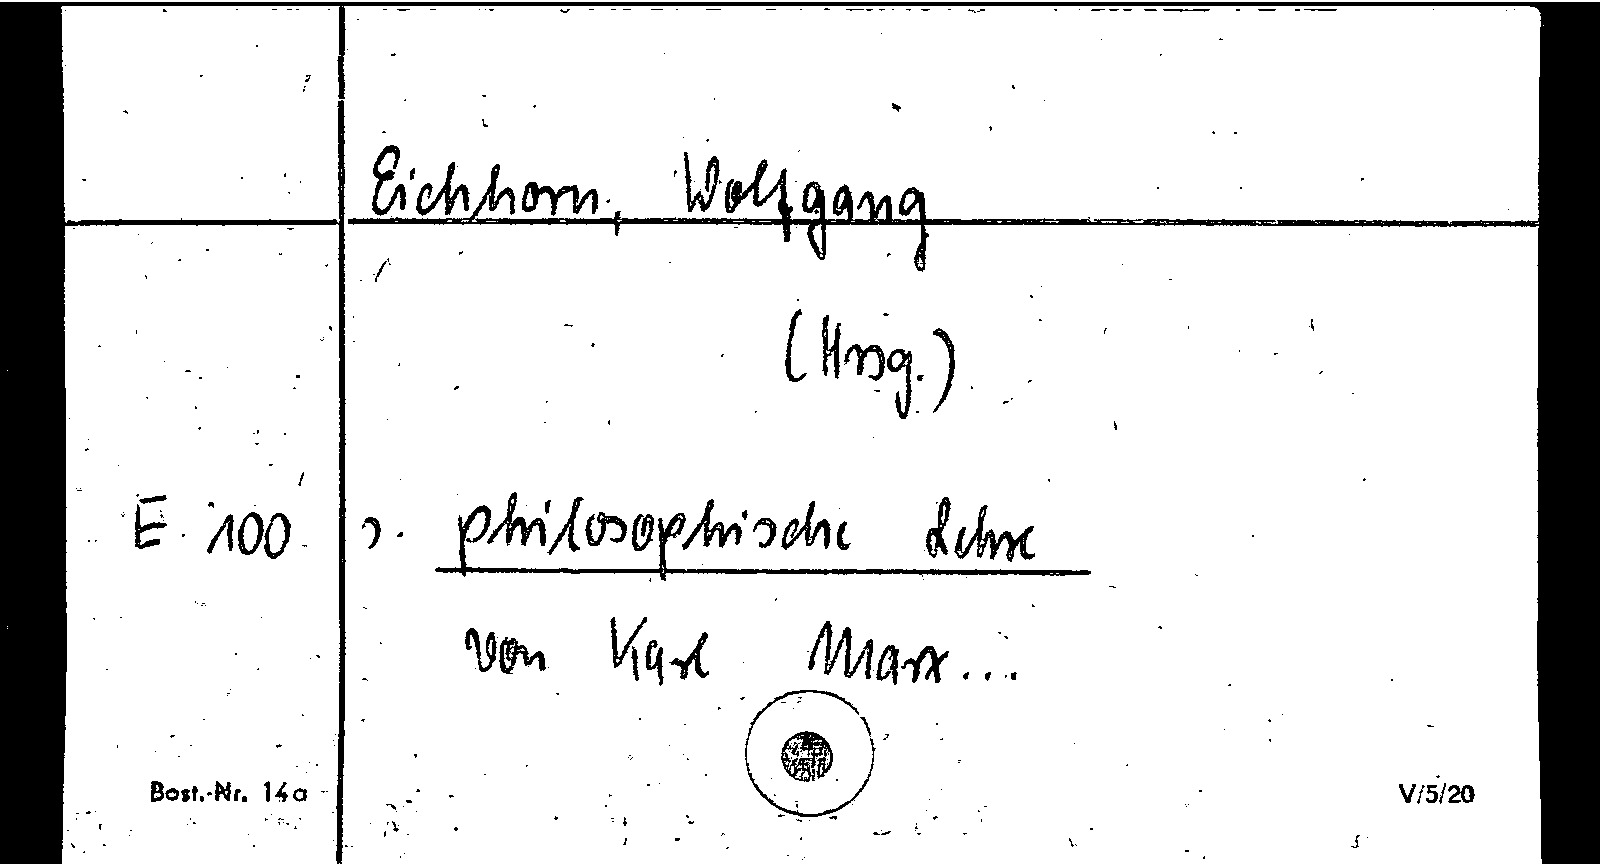 Eichhorn, Wolfgang
(Hrsg.)
E 100 s. philosophische Lehre
von Karl Marx...
Best.-Nr. 14a
V/5/20